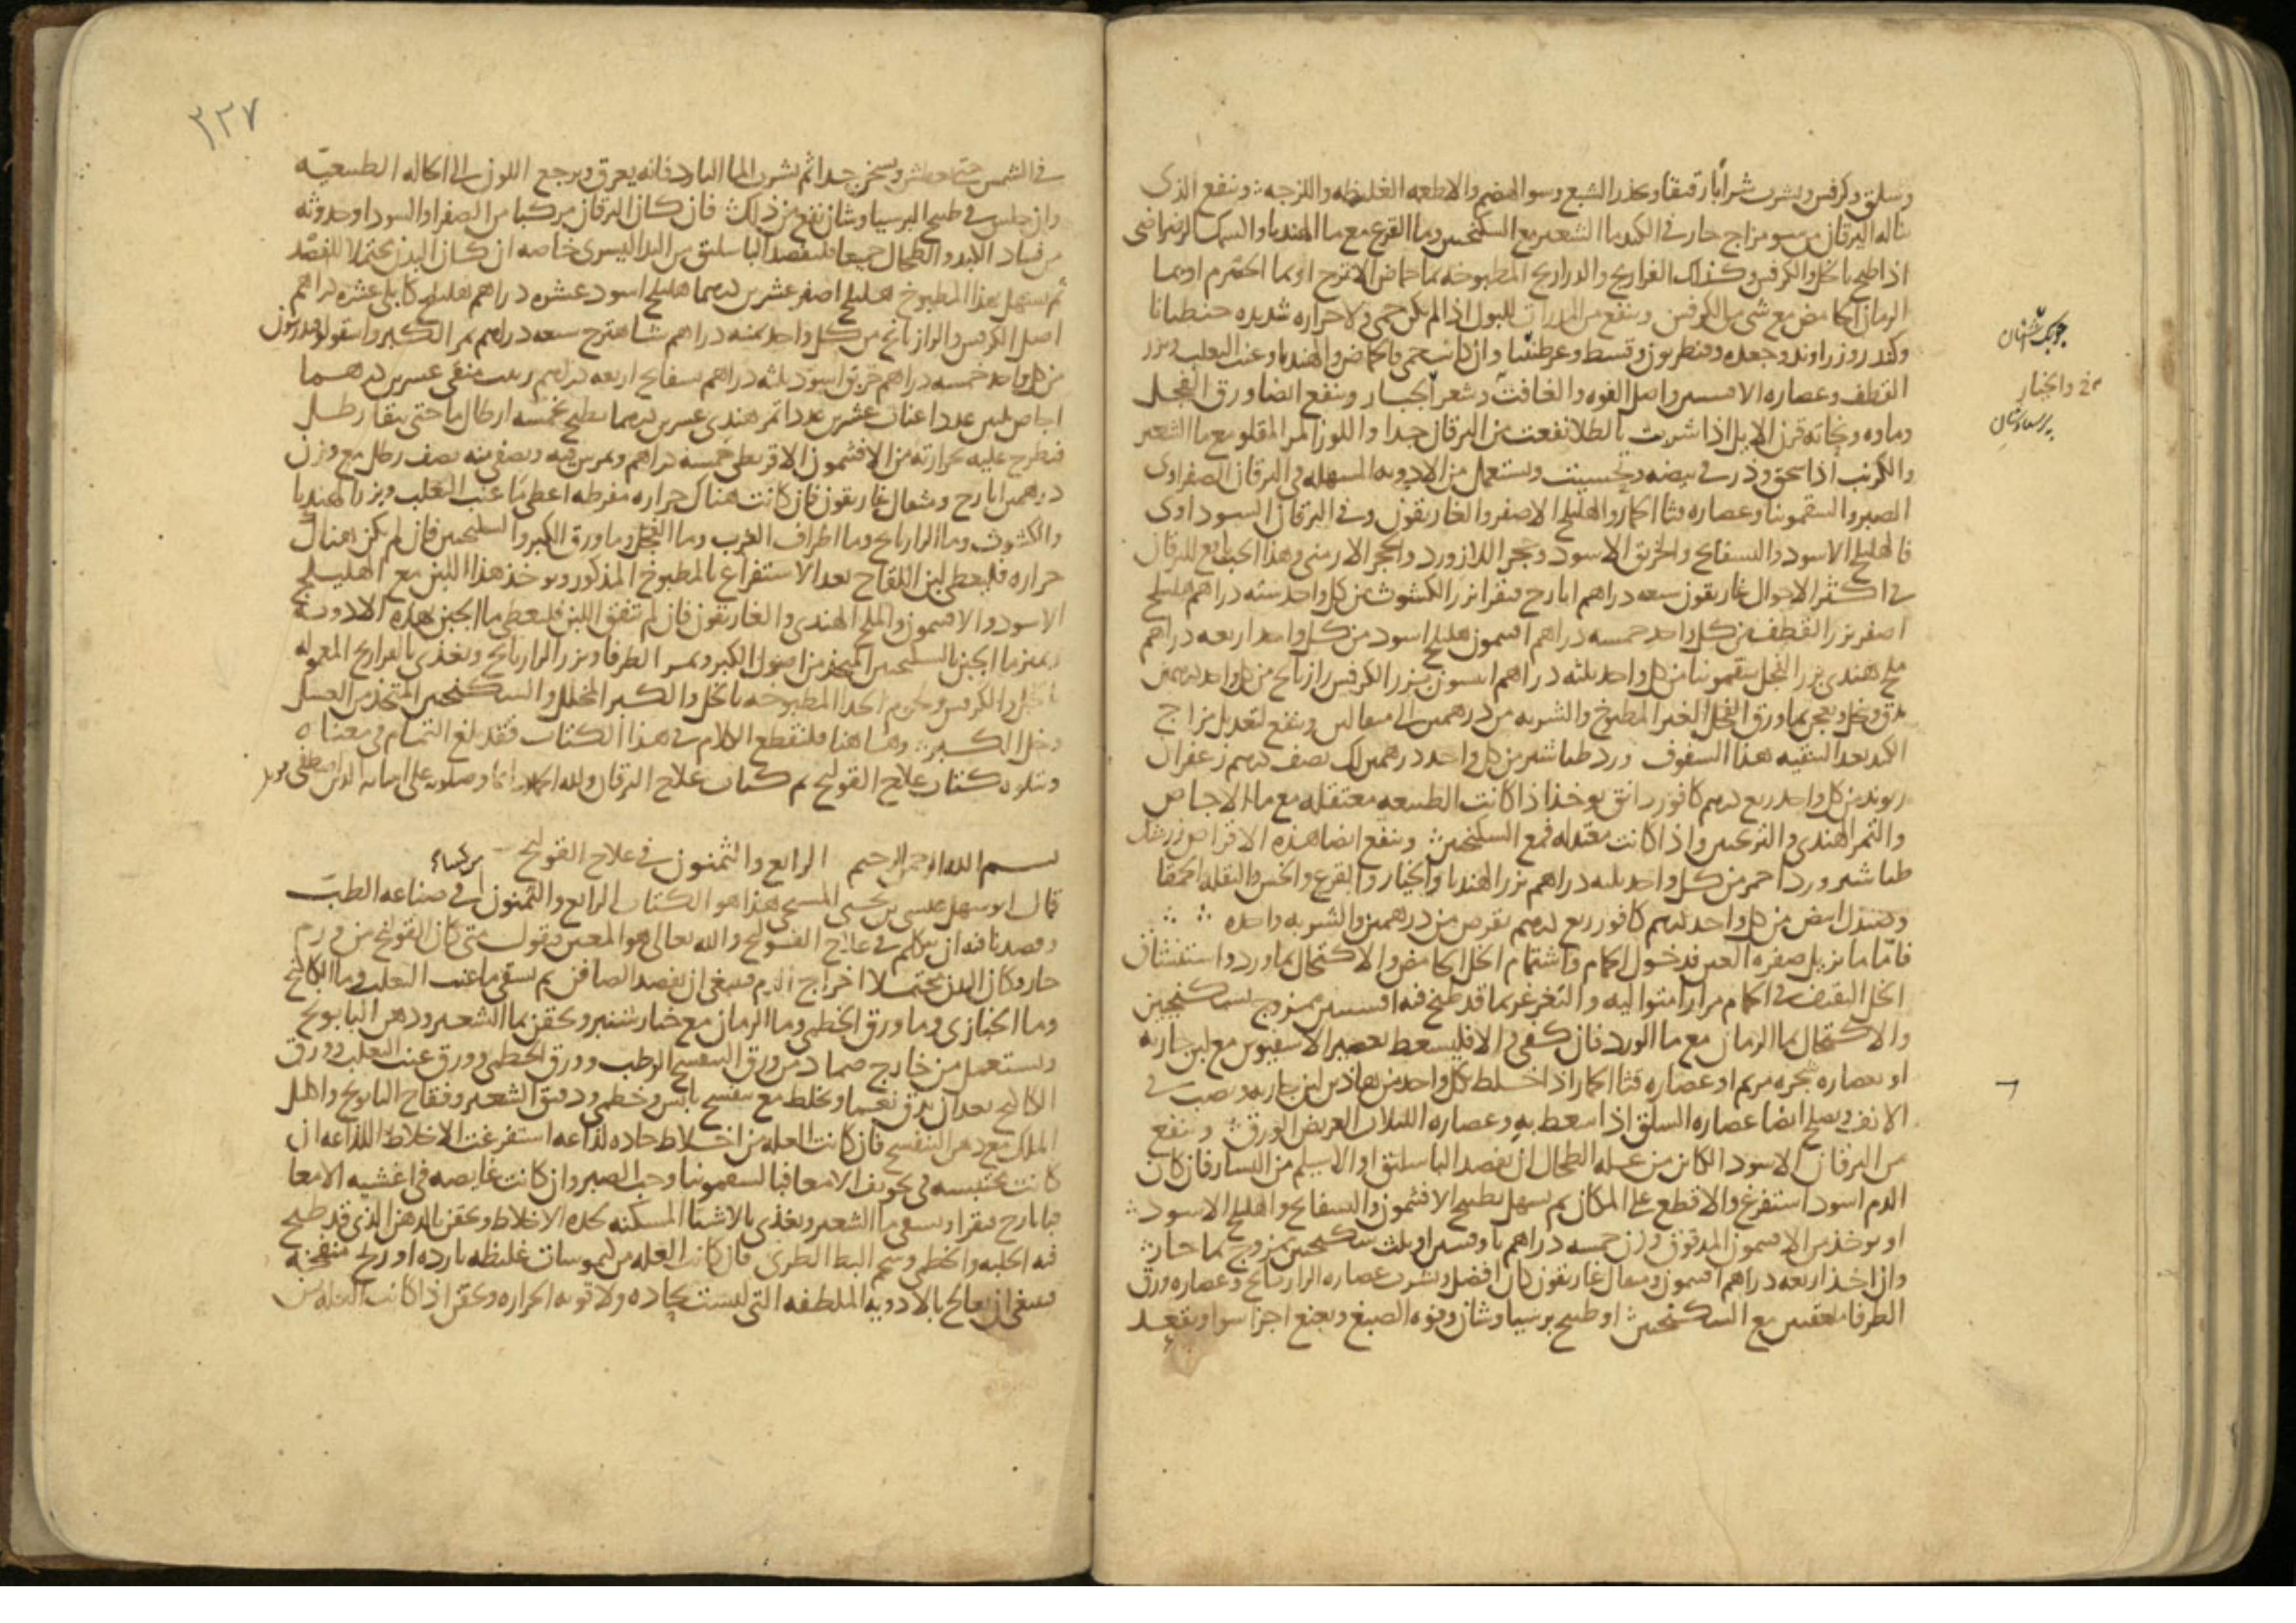 وسلق وكرفس ويشرب شرابا رقيقا ويحذر الشبع وسو الهضم والاطعمه الغليظه واللزجه وينفع الذى
ناله اليرقان من سو مزاج حار فى الكبد ما الشعير مع السكنجبين وما القرع مع ما الهندبا والسمك الرضراضى
اذا طبخ بالخل والكرفس وكذلك الفراريج والدراريج المطبوخه بما حماض الاترج او بما الحصرم او بما
الرمان الحامض مع شى من الكرفس وينفع من المدرات للبول اذا لم يكن حمى ولا حراره شديده جنطيانا
وكندر وزراوند وجعده وقنطريون وقسط وعرطنيثا وان كانت حمى فالحماض والهندبا وعنب الثعلب وبزر
القطف وعصاره الافسنتين واصل الفوه والغافت وشعر الجبار وينفع ايضا ورق الفجل
وماوه ونحاته قرن الايل اذا شربت بالطلا نفعت من اليرقان جدا واللوز المر المقلو مع ما الشعير
والكرنب اذا سحق وذر فى بيضه وتحسيت ويستعمل من الادويه المسهله فى اليرقان الصفراوى
الصبر والسقمونيا وعصاره قثا الحمار والهليلج الاصفر والغاريقون وفى اليرقان السوداوى
فالهليلج الاسود والبسفايج والخربق الاسود وحجر اللازورد والحجر الارمنى وهذا الحب نافع لليرقان
فى اكثر الاحوال غاريقون سبعه دراهم ايارج فيقرا بزر الكشوث من كل واحد سته دراهم هليلج
اصفر بزر القطف من كل واحد خمسه دراهم افتيمون هليلج اسود من كل واحد اربعه دراهم
ملح هندى بزر الفجل سقمونيا من كل واحد ثلثه دراهم انيسون بزر الكرفس رازيانج من كل واحد درهمين
يدق وينخل ويعجن بما ورق الفجل الغير المطبوخ والشربه من درهمين الى مثقالين وينفع لتعديل مزاج
الكبد بعد التنقيه هذا السفوف ورد طباشير من كل واحد درهمين لك نصف درهم زعفران
ريوند من كل واحد ربع درهم كافور دانق يوخذ اذا كانت الطبيعه معتقله مع ما الاجاص
والتمر الهندى والترنجبين واذا كانت معتدله فمع السكنجبين وينفع ايضا هذه الاقراص
طباشير ورد احمر من كل واحد ثلثه دراهم بزر الهندبا والخيار والقرع والخس والبقله الحمقا
وصندل ابيض من كل واحد درهم كافور ربع درهم يقرص من درهمين والشربه واحده
فاما ما يزيل صفره العين فدخول الحمام واشتمام الخل الحامض والاكتحال بماورد واستنشاق
الخل الثقيف فى الحمام مرارا متواليه والتغرغر بما قد طبخ فيه افسنتين ممزوج بسكنجبين
والاكتحال بما الرمان مع ما الورد فان كفى والا فليسعط بعصير الاسفيوس مع لبن جاريه
او بعصاره شجره مريم او عصاره قثا الحمار اذا خلط كل واحد من هاذين لبن جاريه وصب فى
الانف ويصلح ايضا عصاره السلق اذا سعط به وعصاره اللبلاب العريض الورق وينفع
من اليرقان الاسود الكاين من عله الطحال ان يفصد الباسليق او الاسيلم من اليسار فان كان
الدم اسود استفرغ والا قطع على المكان ثم يسهل بطبيخ الافتيمون والبسفايج والهليلج الاسود
او يوخذ من الافتيمون المدقوق وزن خمسه دراهم باوقيتين او بثلث سكنجبين ممزوج بما حار
وان اخذ اربعه دراهم افتيمون ومثقال غاريقون كان افضل ويشرب عصاره الرازيانج وعصاره ورق
الطرفا مع السكنجبين او طبيخ برسياوشان وفوه الصبغ ونعنع اجزا سوا ويقعد
جوبك اشنان
خ والخيار
برسياوشان
٣٢٧
فى الشمس حتى يعطش ويسخن جدا ثم يشرب الما البارد فانه يعرق ويرجع اللون الى الحاله الطبيعيه
وان جلس فى طبيخ البرسياوشان نفع من ذلك فان كان اليرقان مركبا من الصفرا والسودا وحدوثه
من فساد الكبد والطحال جميعا فليفصد الباسليق من اليد اليسرى خاصه ان كان البدن محتملا للفصد
ثم يسهل بهذا المطبوخ هليلج اصفر عشرين درهما هليلج اسود عشره دراهم هليلج كابلى عشره دراهم
اصل الكرفس والرازيانج من كل واحد ثمنه دراهم شاهترج سبعه دراهم ثمر الكبر واسقولوفندريون
من كل واحد خمسه دراهم خربق اسود ثلثه دراهم بسفايج اربعه دراهم زبيب منقى عشرين درهما
اجاص ثلثين عددا عناب عشرين عددا تمر هندى عشرين درهما يطبخ بخمسه ارطال ما حتى يبقا رطل
فيطرح عليه بحرارته من الافتيمون الاقريطى خمسه دراهم ويمرس فيه ويصفى منه نصف رطل مع وزن
درهمين ايارج ومثقال غاريقون فان كانت هناك حراره مفرطه اعطى ما عنب الثعلب وبزر الهندبا
والكشوث وما الرازيانج وما اطراف الغرب وما الفجل وما ورق الكبر والسكنجبين فان لم يكن هناك
حراره فليعطى لبن اللقاح بعد الاستفراغ بالمطبوخ المذكور ويوخذ هذا اللبن مع الهليلج
الاسود والافتيمون والملح الهندى والغاريقون فان لم تتفق اللبن فليعطى ما الجبن بهذه الادويه
يميز ما الجبن بالسكنجبين المتخذ من اصول الكبر وثمر الطرفا وبزر الرازيانج ويغذى بالفراريج المعموله
بالخل والكرفس ولحوم الجدا المطبوخه بالخل والكبر المخلل والسكنجبين المتخذ من العسل
وخل الكبر وهاهنا فلنقطع الكلام فى هذا الكتاب فقد بلغ التمام فى معناه
ويتلوه كتاب علاج القولنج تم كتاب علاج اليرقان ولله الحمد دايما
بسم الله الرحمن الرحيم الرابع والثمنون فى علاج القولنج
قال ابو سهل عيسى بن يحيى المسيحى هذا هو الكتاب الرابع والثمنون فى صناعه الطب
وقصدنا فيه ان نتكلم فى علاج القولنج والله تعالى هو المعين ونقول متى كان القولنج من ورم
حار وكان البدن محتملا اخراج الدم فينبغى ان يفصد الصافن ثم يسقى ما عنب الثعلب وما الكاكنج
وما الخبازى وما ورق الخطمى وما الرمان مع خيار شنبر ويحقن بما الشعير ودهن البابونج
ويستعمل من خارج ضماد من ورق البنفسج الرطب وورق الخطمى وورق عنب الثعلب وورق
الكاكنج بعد ان يدق نعما ويخلط مع بنفسج يابس وخطمى ودقيق الشعير وفقاح البابونج واكليل
الملك مع دهن البنفسج فان كانت العله من اخلاط حاده لذاعه استفرغت الاخلاط اللذاعه ان
كانت محتبسه فى تجويف الامعا فبالسقمونيا وحب الصبر وان كانت غايصه فى اغشيه الامعا
فبايارج فيقرا ويسقى ما الشعير ويغذى بالاشيا المسكنه لحده الاخلاط ويحقن بالدهن الذى قد طبخ
فيه الحلبه والخطمى وشحم البط الطرى فان كانت العله من كيموسات غليظه بارده او ريح منفخه
فينبغى ان يعالج بالادويه الملطفه التى ليست بحاده ولا قويه الحراره ويحقن اذا كانت العله من